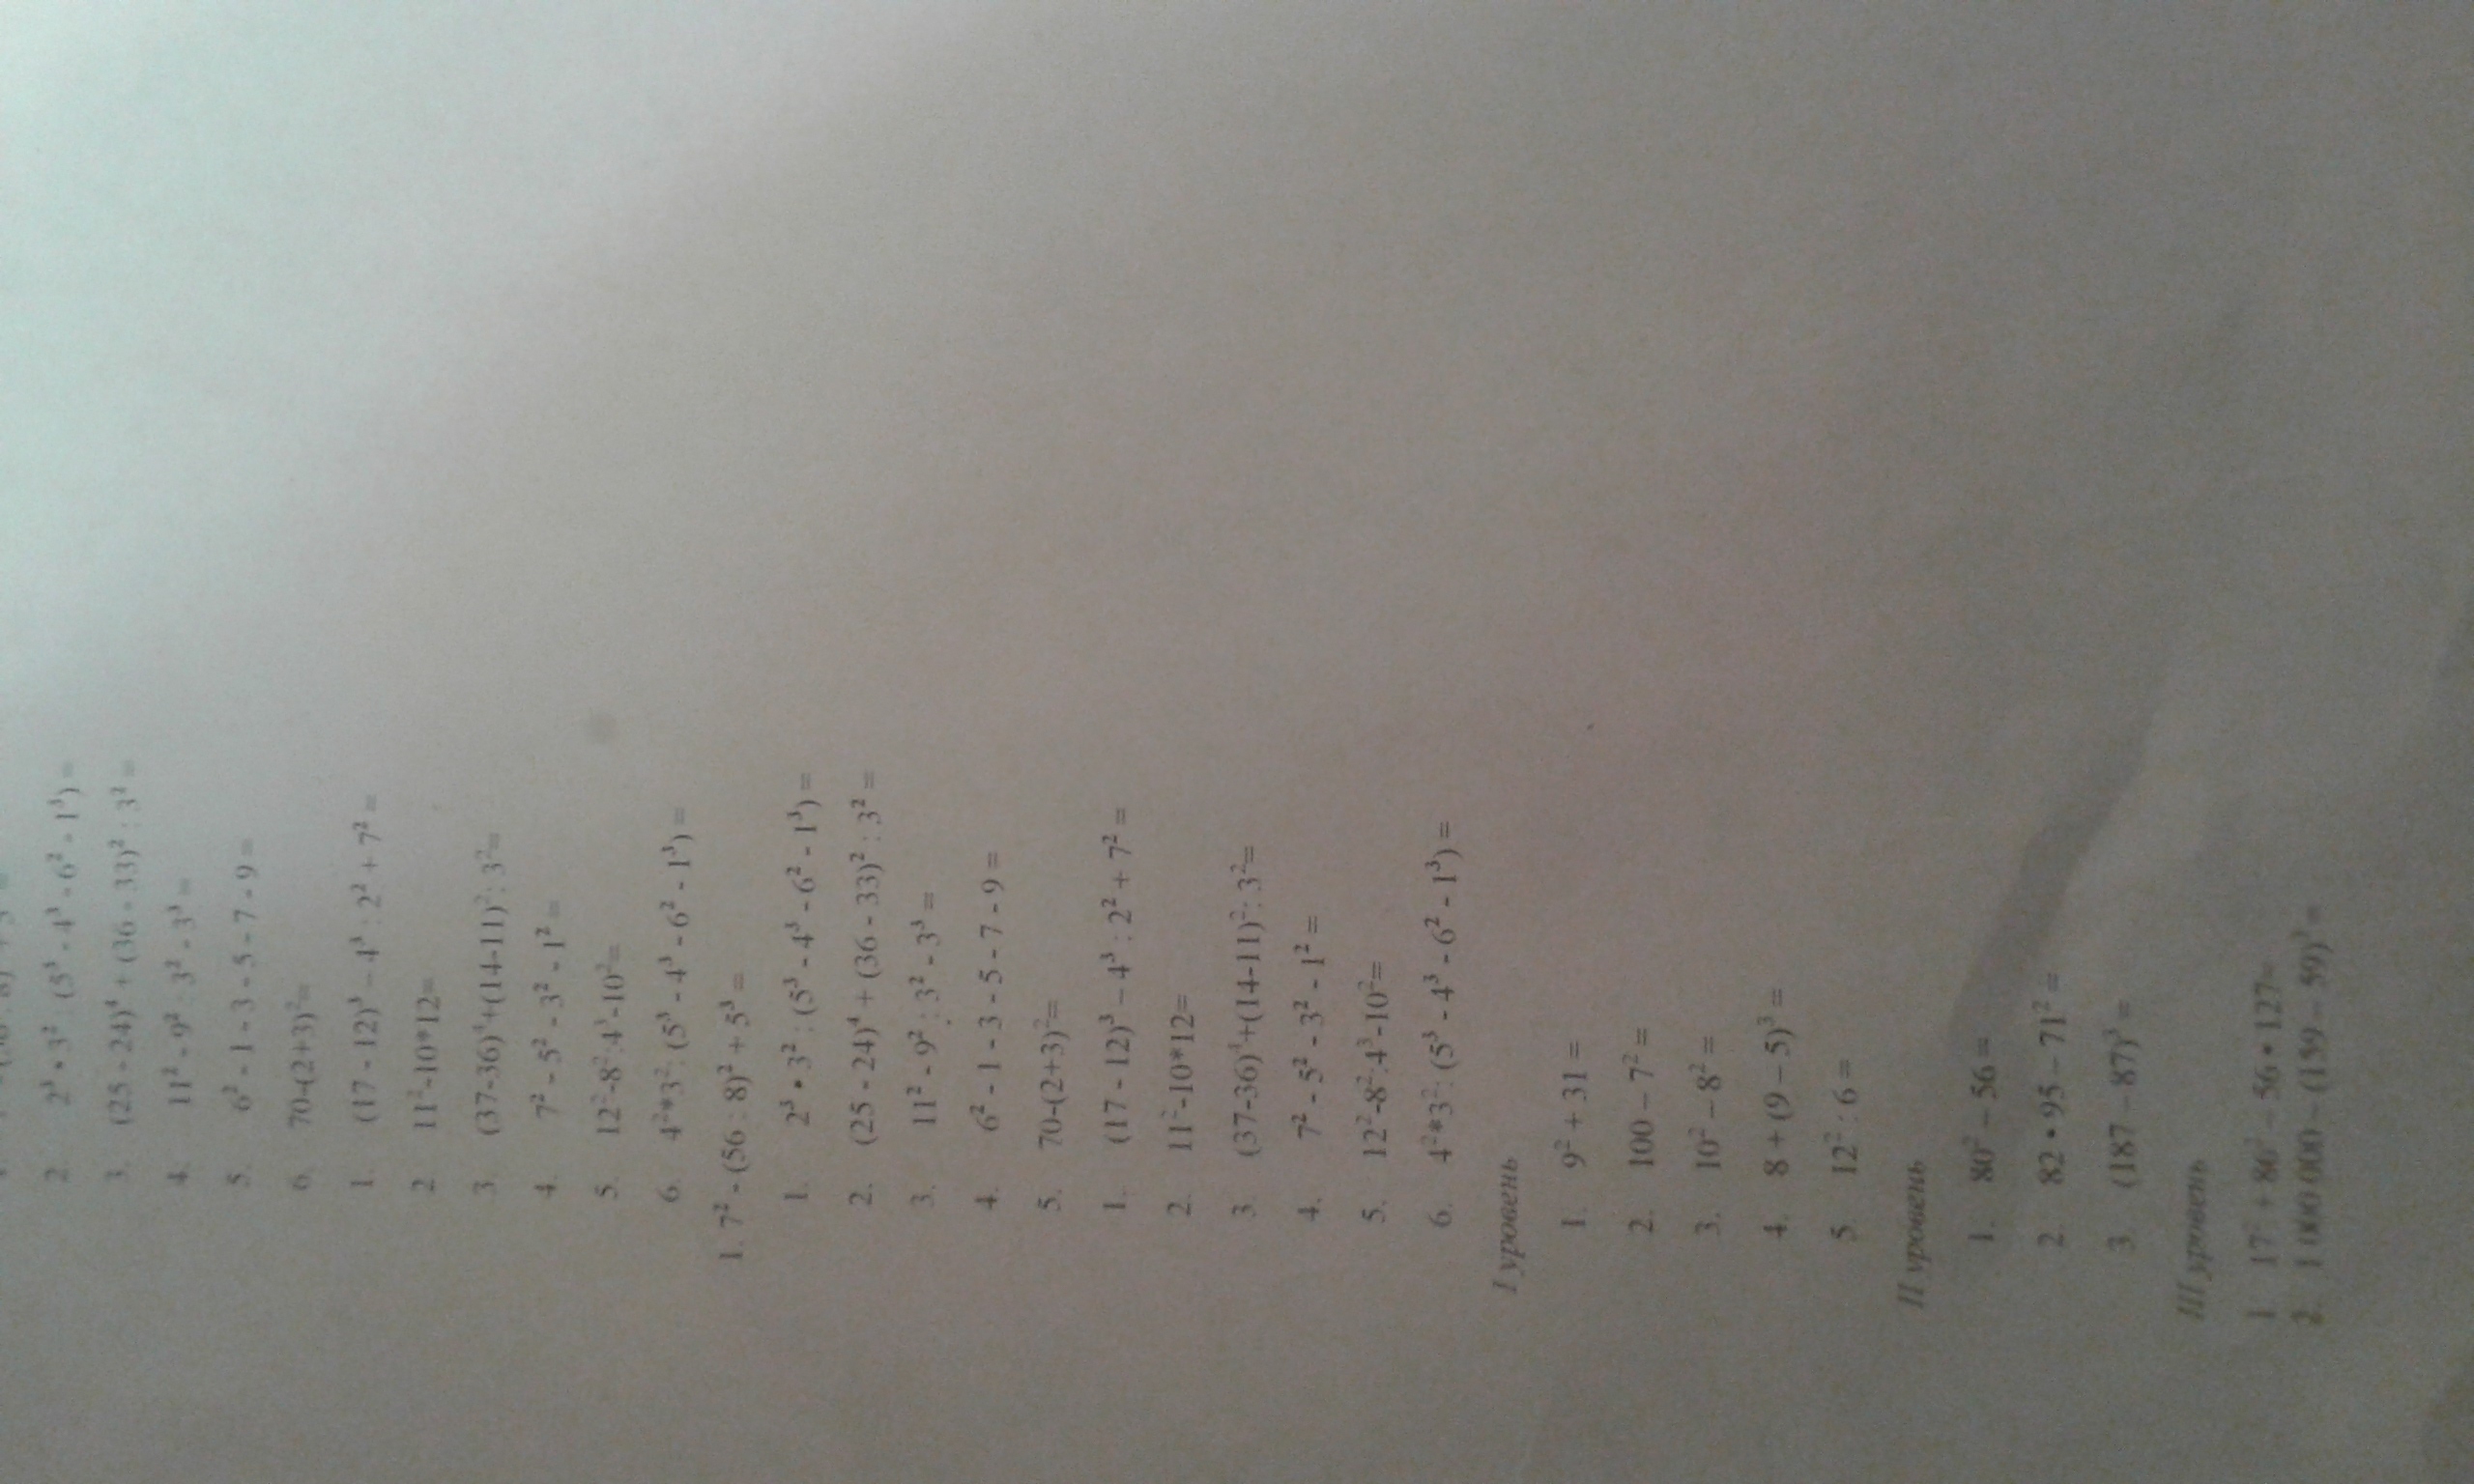 2. 2³ • 3² : (5³ - 4³ - 6² - 1³) =
3. (25 - 24)⁴ + (36 - 33)² : 3² =
4. 11² - 9² : 3² - 3³ =
5. 6² - 1 - 3 - 5 - 7 - 9 =
6. 70-(2+3)²=
1. (17 - 12)³ – 4³ : 2² + 7² =
2 11²-10*12=
3. (37-36)⁴+(14-11)²: 3²=
4. 7² - 5² - 3² - 1² =
5. 12²-8²:4³-10²=
6. 4²*3²: (5³ - 4³ - 6² - 1³) =
1. 7² - (56 : 8)² + 5³ =
1. 2³ • 3² : (5³ - 4³ - 6² - 1³) =
2. (25 - 24)⁴ + (36 - 33)² : 3² =
3. 11² - 9² : 3² - 3³ =
4. 6² - 1 - 3 - 5 - 7 - 9 =
5. 70-(2+3)²=
1. (17 - 12)³ – 4³ : 2² + 7² =
2. 11²-10*12=
3 (37-36)⁴+(14-11)²: 3²=
4. 7² - 5² - 3² - 1² =
5. 12²-8²:4³-10²=
6. 4²*3²: (5³ - 4³ - 6² - 1³) =
I уровень
1. 9² + 31 =
2. 100 – 7² =
3. 10² – 8² =
4. 8 + (9 – 5)³ =
5. 12² : 6 =
II уровень
1. 80² – 56 =
2. 82 • 95 – 71² =
3. (187 – 87)³ =
III уровень
1 17² + 86² – 56 • 127=
2. 1 000 000 – (159 – 59)³ =